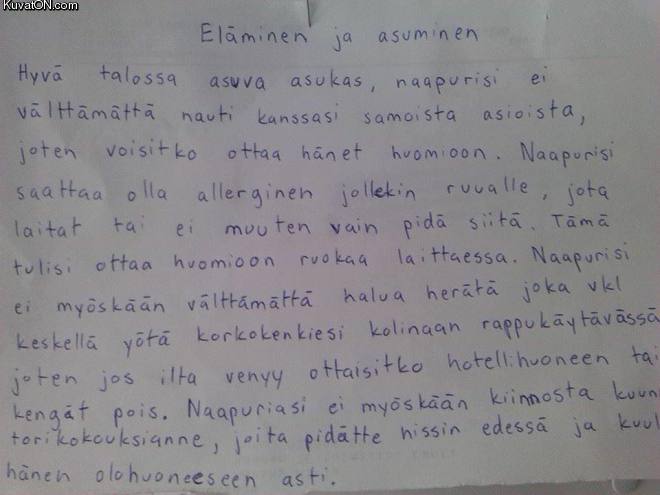 KuvatON.com
Eläminen ja asuminen
Hyvä talossa asuva asukas, naapurisi ei
välttämättä nauti kanssasi samoista asioista,
joten voisitko ottaa hänet huomioon. Naapurisi
saattaa olla allerginen jollekin ruualle, jota
laitat tai ei muuten vain pidä siitä. Tämä
tulisi ottaa huomioon ruokaa laittaessa. Naapurisi
ei myöskään välttämättä halua herätä joka vkl
keskellä yötä korkokenkiesi kolinaan rappukäytävässä
joten jos ilta venyy ottaisitko hotellihuoneen tai
kengät pois. Naapuriasi ei myöskään kiinnosta kuun
torikokouksianne, joita pidätte hissin edessä ja kuul
hänen olohuoneeseen asti.